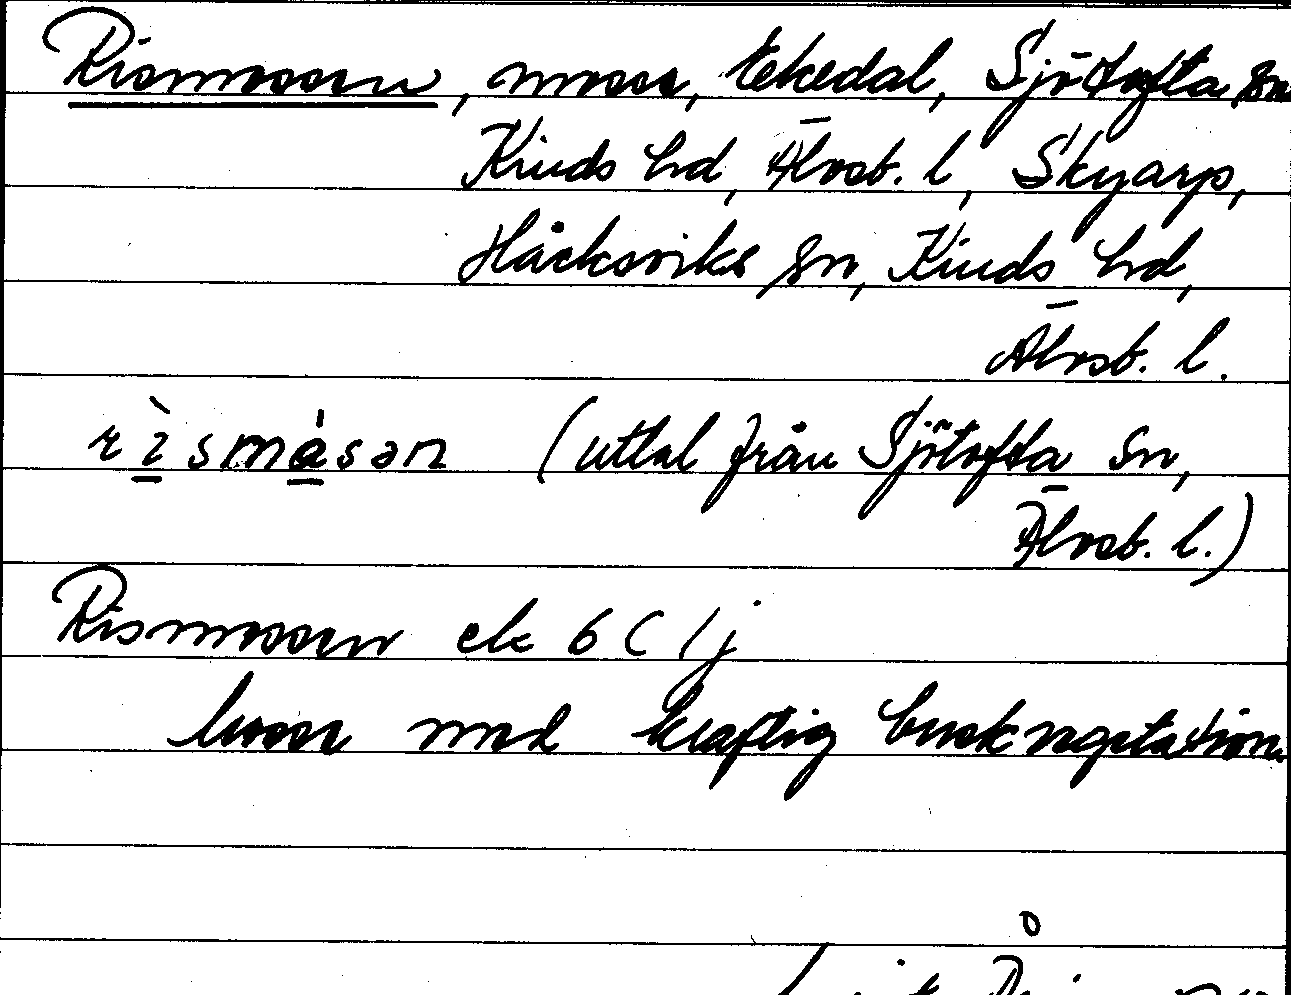 Rismossen, mosse, Ekedal, Sjötofta sn
Kinds hd, Älvsb. l, Skyarp,
Håcksviks sn, Kinds hd,
Älvsb. l.
rìsmåsən (uttal från Sjötofta sn,
Älvsb. l.)
Rismossen ek 6 C 1 j
mosse med kraftig buskvegetation.